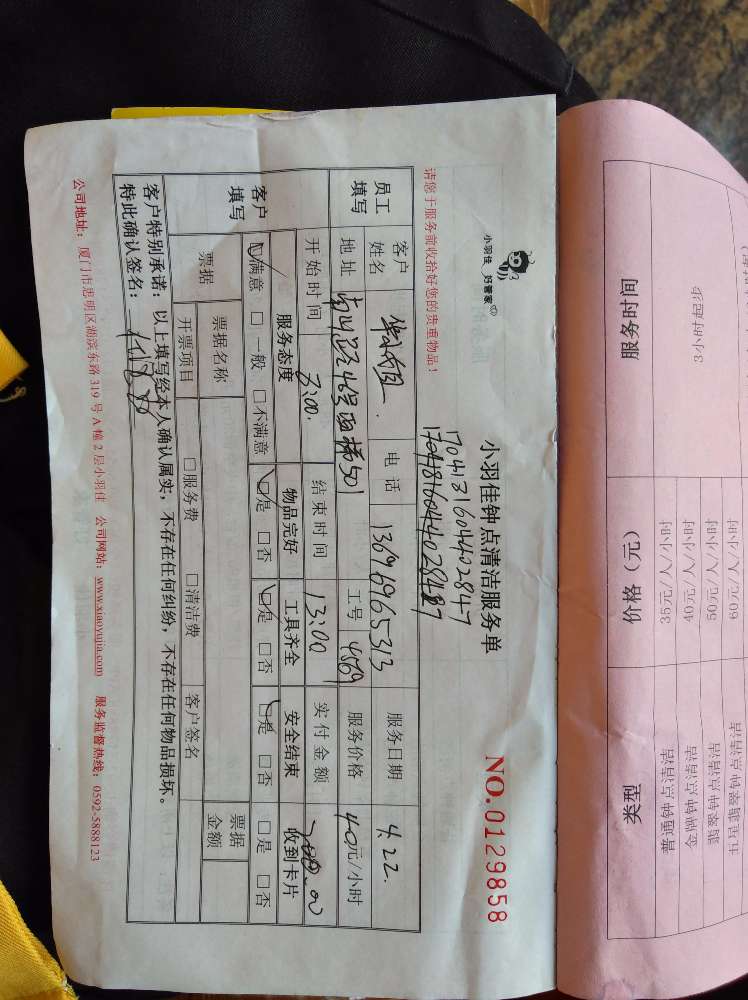 小羽佳 好管家
小羽佳钟点清洁服务单
NO.0129858
170431604402847
请您于服务前收拾好您的贵重物品！
员工填写 客户姓名 电话 13696965313 服务日期 4.22.
地址 工号 4569 服务价格 40元/小时
开始时间 结束时间 13:00 实付金额
客户填写 服务态度 物品完好 工具齐全 安全结束 收到卡片
☑满意 □一般 □不满意 ☑是 □否 ☑是 □否 ☑是 □否 □是 □否
票据 票据名称 票据金额
开票项目 □服务费 □清洁费 客户签名
客户特别承诺：以上填写经本人确认属实，不存在任何纠纷，不存在任何物品损坏。
特此确认签名：
公司地址：厦门市思明区湖滨东路 319 号 A 幢 2 层小羽佳 公司网站：www.xiaoyujia.com 服务监督热线：0592-5888123
服务时间 价格（元） 类型
3小时起步
35元/人/小时 普通钟点清洁
40元/人/小时 金牌钟点清洁
50元/人/小时 翡翠钟点清洁
60元/人/小时 五星翡翠钟点清洁